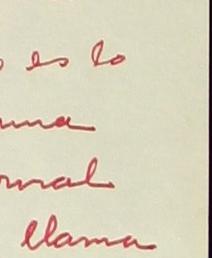 es lo
una
rmal
llama